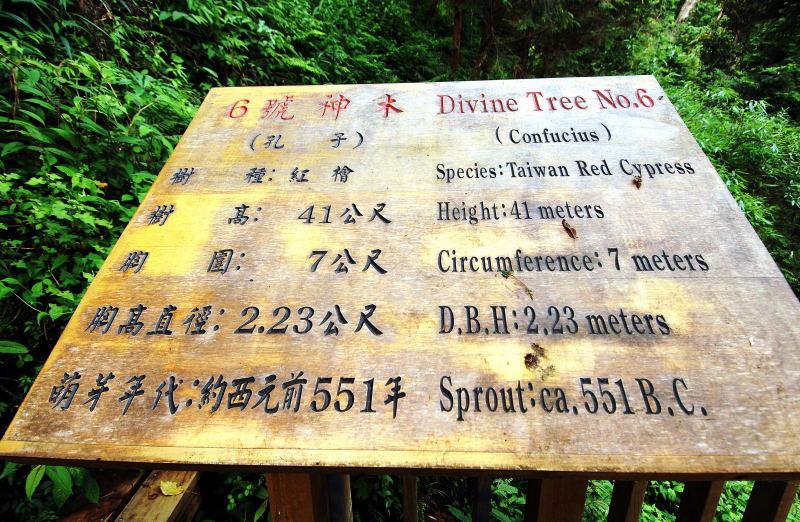 6號神木 Divine Tree No.6
(孔子) (Confucius)
樹種:紅檜 Species:Taiwan Red Cypress
樹高: 41公尺 Height:41 meters
胸圍: 7公尺 Circumference: 7 meters
胸高直徑:2.23公尺 D.B.H:2.23 meters
萌芽年代:約西元前551年 Sprout:ca.551 B.C.